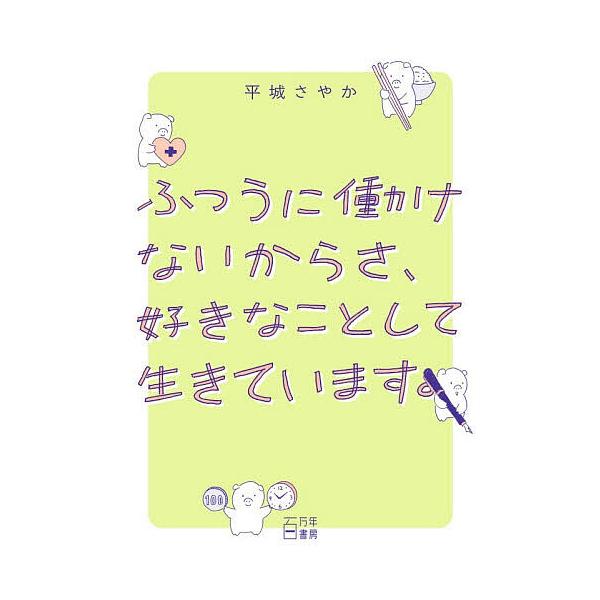 平城さやか
ふつうに働かけ
ないからさ、
好きなことして
生きています。
100
12
3
6
9
百万年
書房